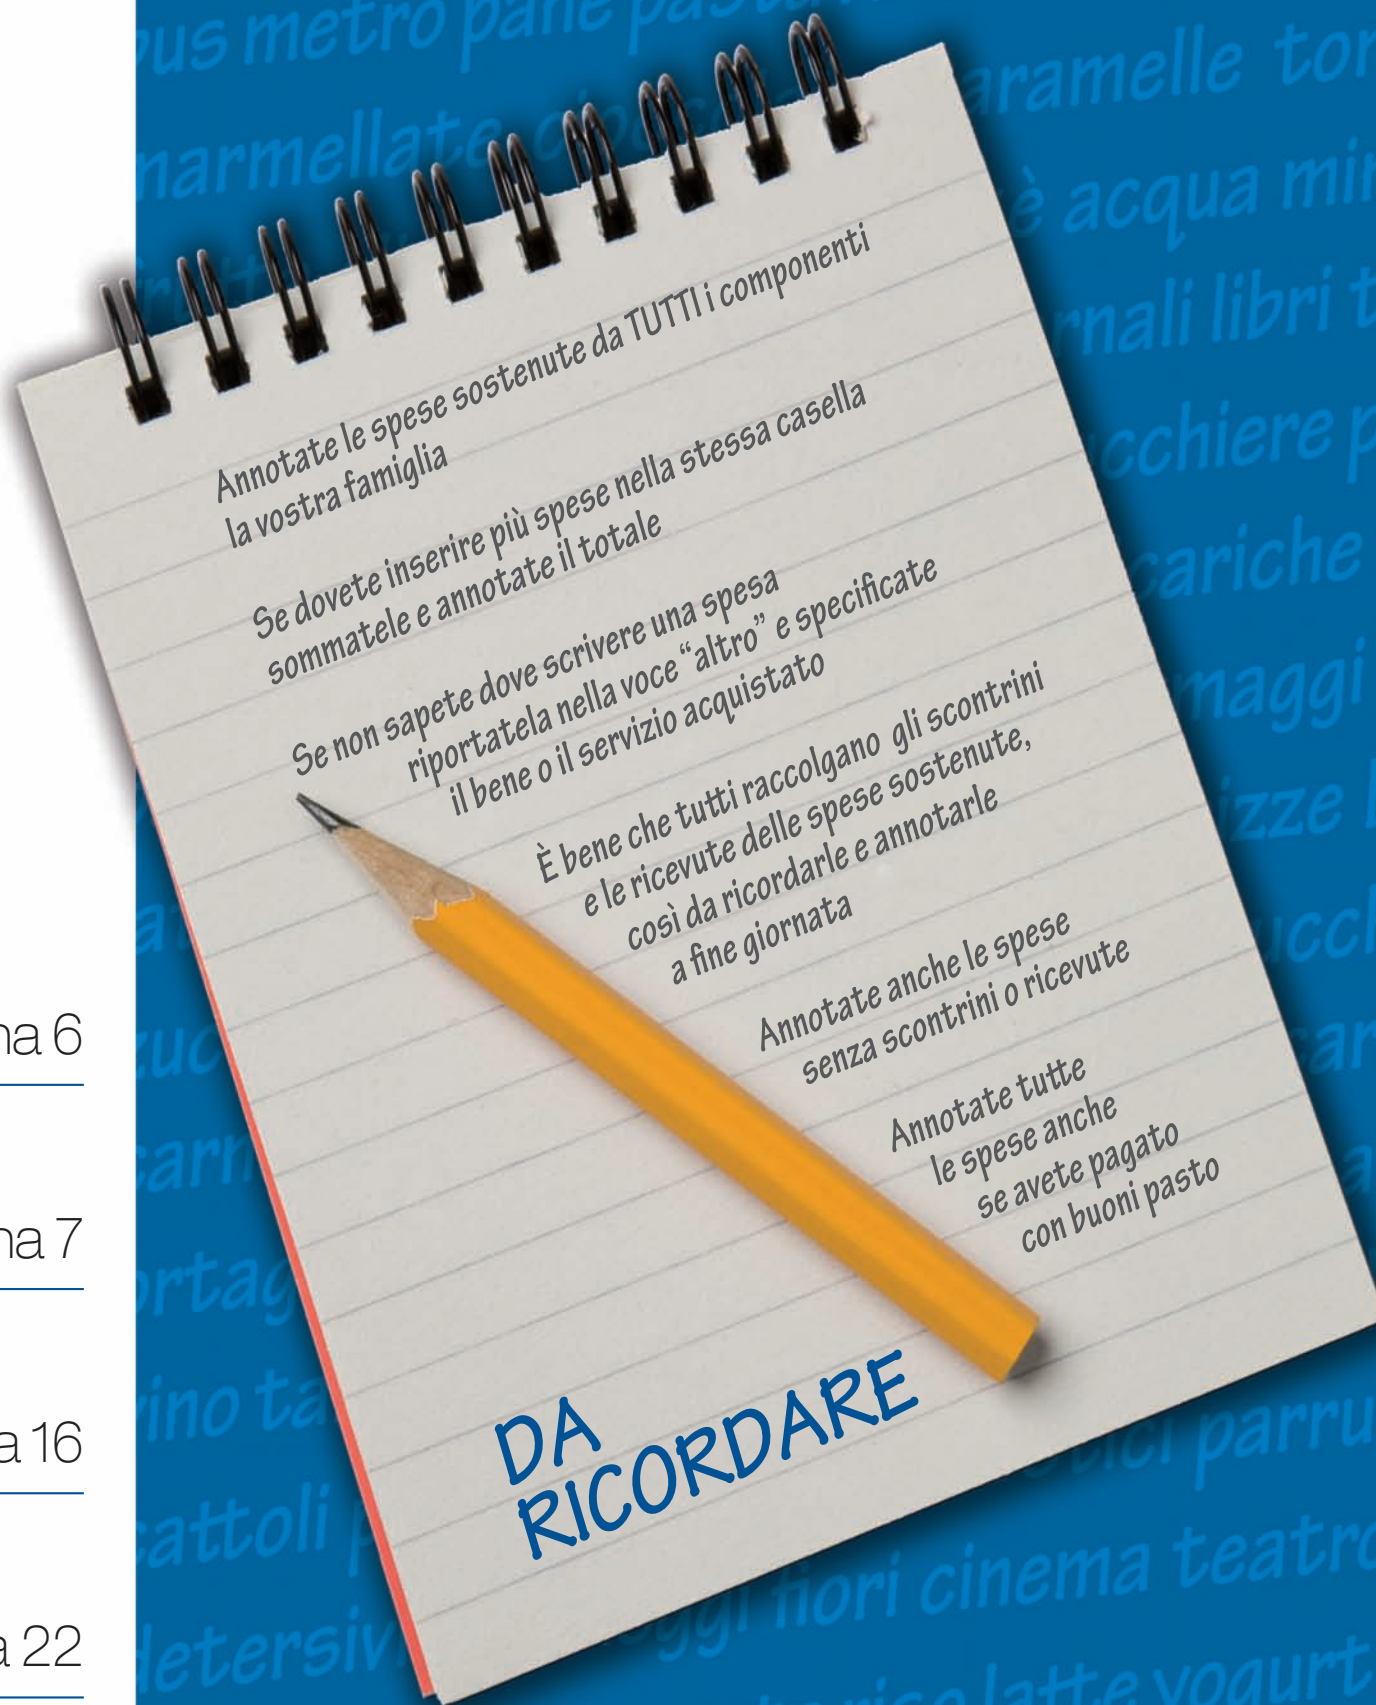 Annotate le spese sostenute da TUTTI i componenti
la vostra famiglia
Se dovete inserire più spese nella stessa casella
sommatele e annotate il totale
Se non sapete dove scrivere una spesa
riportatela nella voce “altro” e specificate
il bene o il servizio acquistato
È bene che tutti raccolgano gli scontrini
e le ricevute delle spese sostenute,
così da ricordarle e annotarle
a fine giornata
Annotate anche le spese
senza scontrini o ricevute
Annotate tutte
le spese anche
se avete pagato
con buoni pasto
DA
RICORDARE
6
7
16
22
bus metro pane pasta
marmellate
acqua
libri
fiori cinema teatro
latte yogurt